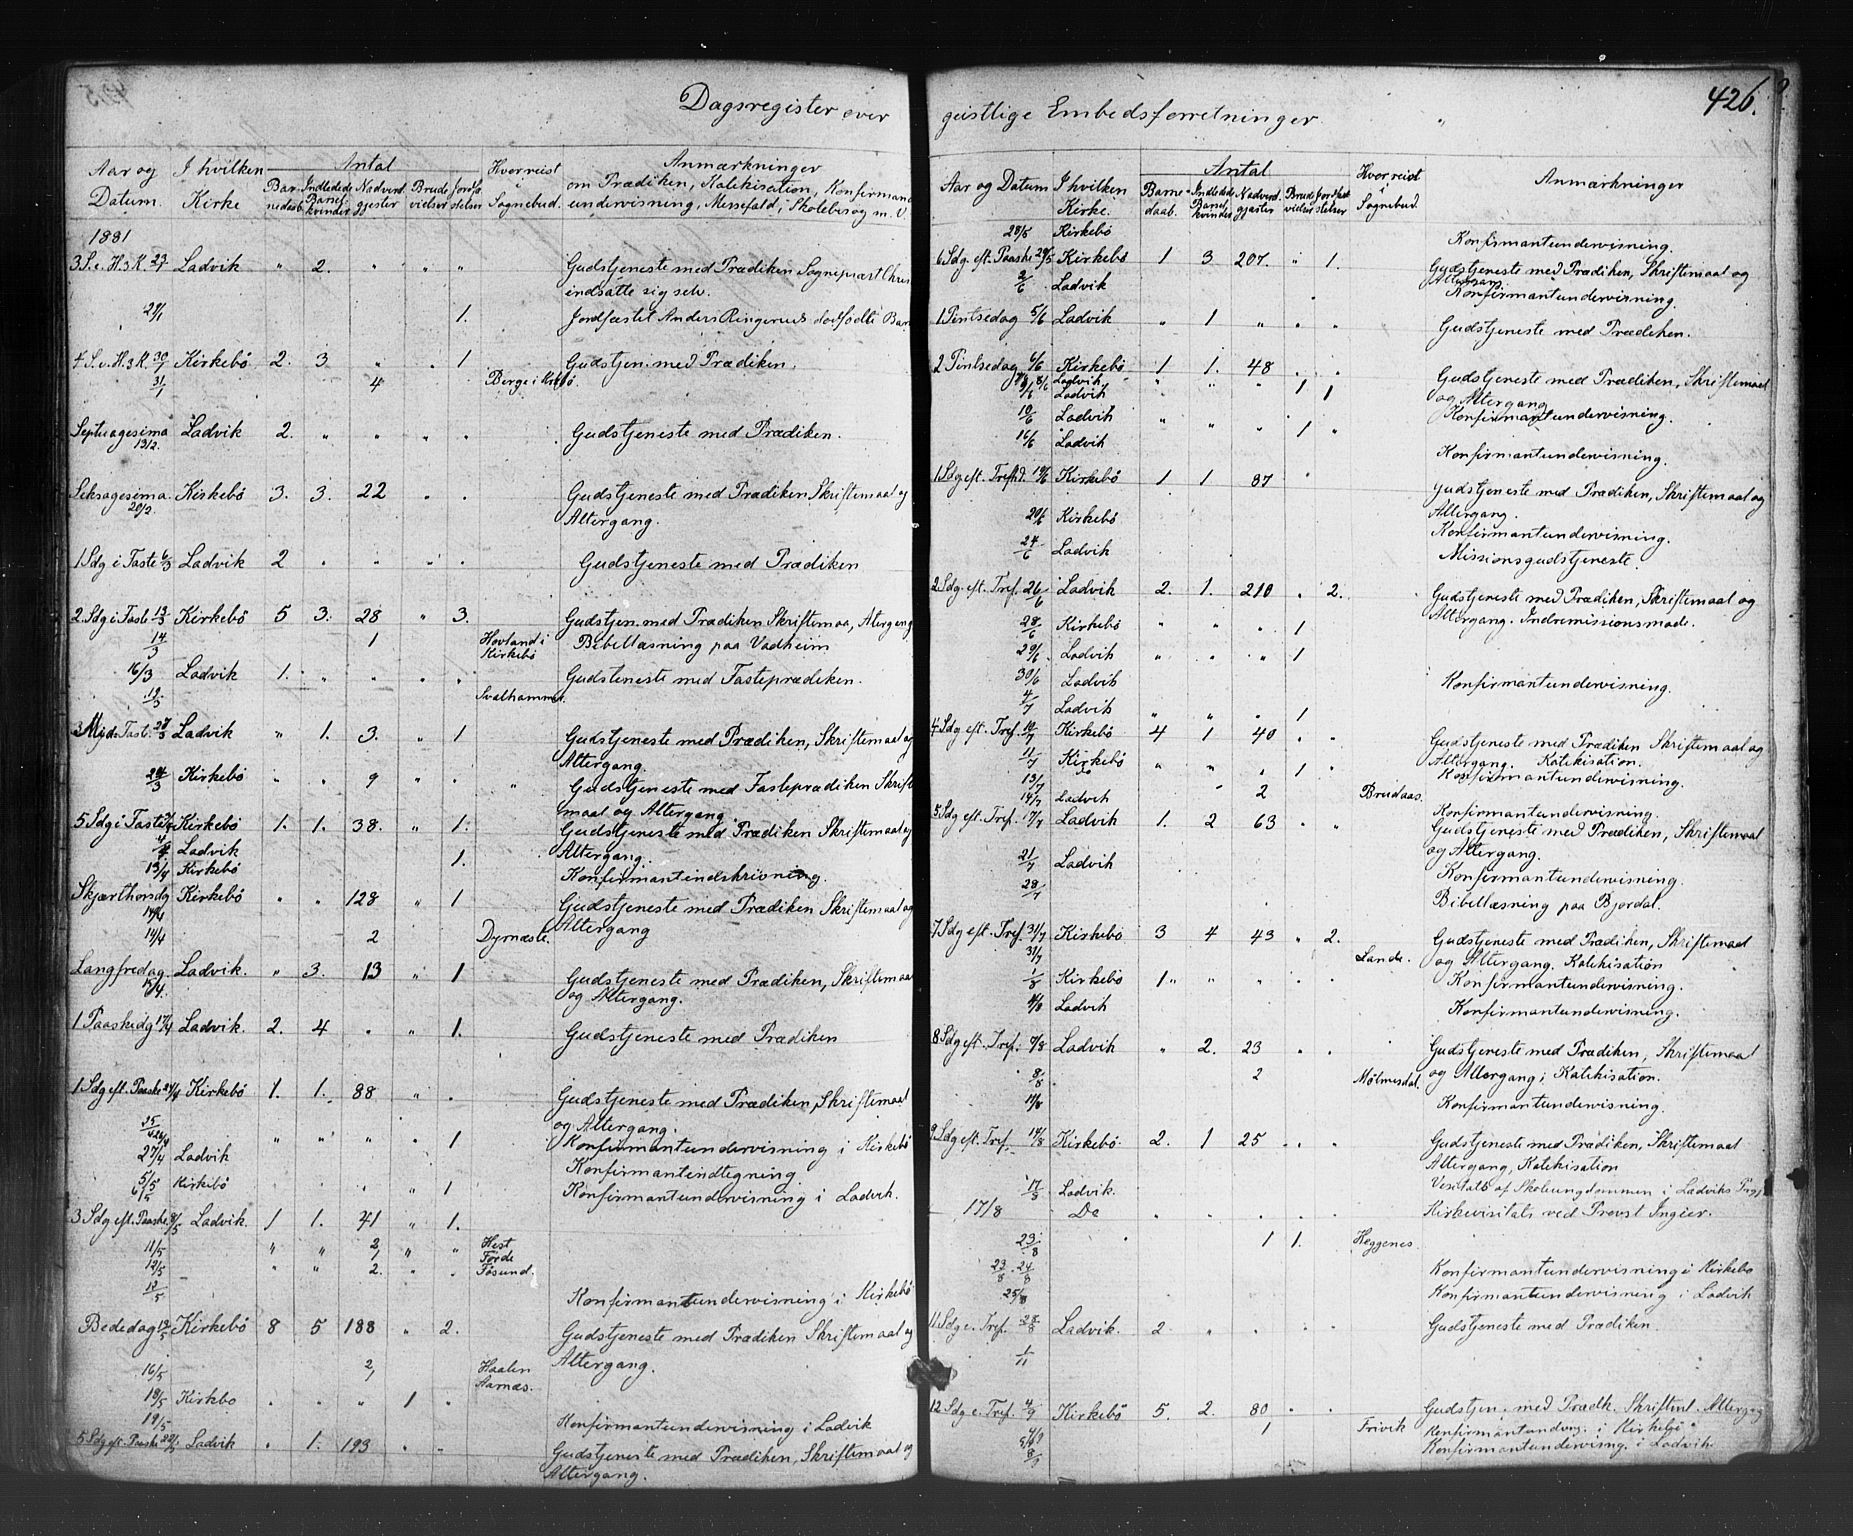 Dagsregister over
Aar og Datum. I hvilken Kirke Antal Hvor reist i Sognebud. Anmærkninger
Barnedaab. Indledede Barselkvinder Nadverdgjester Brudevielser Jordfæstelser om Prædiken, Katekisation, Konfirmand
undervisning, Messefald, Skolebesøg m. V.
1881
3 S. e. H. 3 K. 23/1 Ladvik " 2. " " " Gudstjeneste med Prædiken Sogneprest
indsatte sig selv.
29/1 1. Jordfæstet Anders Ringereids dødfødte Barn
4 S. e. H. 3 K. 30/1 Kirkebö 2. 3 " . 1 Gudstjen. med Prædiken.
31/1 4 Berge i Kirkebö.
Septuagesima 13/2. Ladvik 2. " " " " Gudstjeneste med Prædiken.
Seksagesima 20/2. Kirkebö 3. 3. 22 " . Gudstjeneste med Prædiken Skriftemaal og
Altergang.
1 Sdg i Faste 6/3 Ladvik 2 " " " . Gudstjeneste med Prædiken
2. Sdg i Faste 13/3 Kirkebö 5 3. 28 " 3. Gudstjen. med Prædiken Skriftemaa, Altergang
14/3 1 Hovland i Kirkebö Bibellæsning paa Vadheim
16/3 Ladvik 1. " " " " Gudsteneste med Fasteprædiken.
19/3 Svalhammer.
3 Sdg i Fast. 27/3 Ladvik " 1. 3. " 1 Gudstjeneste med Prædiken, Skriftemaal og
Altergang.
29/3 Kirkebö " " 9 " " Gudstjeneste med Fasteprædiken Skrifte
maal og Altergang.
5 Sdg i Faste 3/4 Kirkebö 1. 1. 38. " 1. Gudstjeneste med Prædiken Skriftemaal og
9/4 Ladvik 1. Altergang.
13/4 Kirkebö Konfirmantindskrivning.
Skjærthorsdg 14/4 Kirkebö " " 128 " 1 Gudstjeneste med Prædiken Skriftemaal og
14/4 2 Dyrnæsle. Altergang
Langfredag 15/4. Ladvik. " 3. 13 " 1 Gudstjeneste med Prædiken, Skriftemaal
og Altergang.
1 Paaskedg 17/4 Ladvik. 2. 4 . " 1. Gudstjeneste med Prædiken
1 Sdg eft. Paaske 24/4 Kirkebö 1. 1. 88 " . Gudstjeneste med Prædiken, Skriftemaal
og Altergang.
25/4 26/4 " " " " 1 Konfirmantundervisning i Kirkebö
27/4 Ladvik Konfirmantindtegning.
5/5 6/5 Kirkebö 1 Konfirmantundervisning i Ladvik.
3 Sdg eft. Paaske 8/5 Ladvik. 1 1. 41 " 1.
11/5 " " 2 " " Hest
1 Förde
12/5 " " 2. " . Tösund.
12/5 Konfirmantundervisning i Kirkebö
Bededag 13/5 Kirkebö 8 5 188 " 2. Gudstjeneste med Prædiken Skriftemaal og
Altergang.
16/5 2, Haalen
Aarnæs.
18/5 Kirkbo . . " 1 "
19/5 Konfirmantundervisning i Ladvik
5 Sdg eft. Paaske 22/5 Ladvik " 1. 193 " " Gudstjeneste med Prædiken, Skriftemaal og
Altergang.
geistlige Embedsforretninger.
426.
Aar og Datum I hvilken Kirke. Antal Hvor reist i Sognebud. Anmærkninger
Barnedaab. Indledede Barselkvinder Nadverdgjester Brudevielser Jordfæstelser
28/5 Kirkebö Konfirmantundervisning.
6 Sdg. eft. Paaske 29/5 Kirkebö 1 3. 207. " 1. Gudstjeneste med Prædiken, Skriftemaal og
Altergang.
2/6 Ladvik Konfirmantundervisning.
1 Pintsedag 5/6 Ladvik " 1 " " " Gudstjeneste med Prædiken.
2 Pintsedag 6/6 Kirkebö 1 1. 48 . . Gudstjeneste med Prædiken, Skriftemaal
og Altergang
8/6 Ladvik,
9/6 Ladvik " " " 1 1 Konfirmantundervisning.
10/6 Ladvik
16/6 Ladvik " " " 1 " Konfirmantundervisning.
1 Sdg eft. Trefd. 19/6 Kirkebö 1 1 87 " Gudstjeneste med Prædiken, Skriftemaal og
Altergang.
20/6 Kirkebö Konfirmantundervisning.
24/6 Ladvik Missionsgudstjeneste.
2 Sdg. eft. Tref. 26/6 Ladvik 2. 1. 210 " 2. Gudstjeneste med Prædiken, Skriftemaal og
Altergang. Indremissionsmøde.
28/6 Kirkebö " " " 1
29/6 Ladvik " " " 1
30/6 Ladvik Konfirmantundervisning.
4/7 Ladvik " " 1
4 Sdg eft. Tref. 10/7 Kirkebö 4 1 40 " . Gudstjeneste med Prædiken Skriftemaal og
Altergang. Katekisation.
11/7 Kirkebö " " " 1 " Konfirmantundervisning.
13/7 Do 2 Brudaas.
14/7 Ladvik Konfirmantundervisning.
5 Sdg eft. Tref. 17/7 Ladvik 1. 2 63 " " Gudstjeneste med Prædiken, Skriftemaal
og Altergang.
21/7 Ladvik Konfirmantundervisning.
28/7 Bibellæsning paa Bjordal.
7 Sdg eft. Tref. 31/7 Kirkebö 3 4 43 " 2. Gudstjeneste med Prædiken, Skriftemaal
31/7 Lande. og Altergang. Katekisation
1/8 Kirkebö 1 " " " " Konfirmantundervisning.
4/8 Ladvik Konfirmantundervisning.
8 Sdg eft. Tref. 7/8 Ladvik " 2. 23 " . Gudstjeneste med Prædiken, Skriftemaal
8/8 2 Mölmesdal. og Altergang; Katekisation.
11/8 Konfirmantundervisning.
9 Sdg eft. Tref. 14/8 Kirkebö. 2. 1 25 . . Gudstjeneste med Prædiken, Skriftemaal
Altergang, Katekisation
17/8 Ladvik. Visitats af Skoleungdommen i Ladviks Prgj
17/8 Do " " . " . Kirkevisitats ved Provst Ingier.
23/8 1 1. Heggenes.
23/8 . 24/8 Konfirmantundervisning i Kirkebo
25/8 Konfirmantundervisning i Ladvik
11. Sdg e. Tref. 28/8 Ladvik. 2 " " " " Gudstjeneste med Prædiken.
1/11
12 Sdg e. Tref. 4/9 Kirkebö 5. 2. 80 " " Gudstjen. med Prædk. Skriftml. Altergg
4/9 1 Frivik Konfirmantundvng. i Kirkebö
8/9 Konfirmantundervisng. i Ladvik